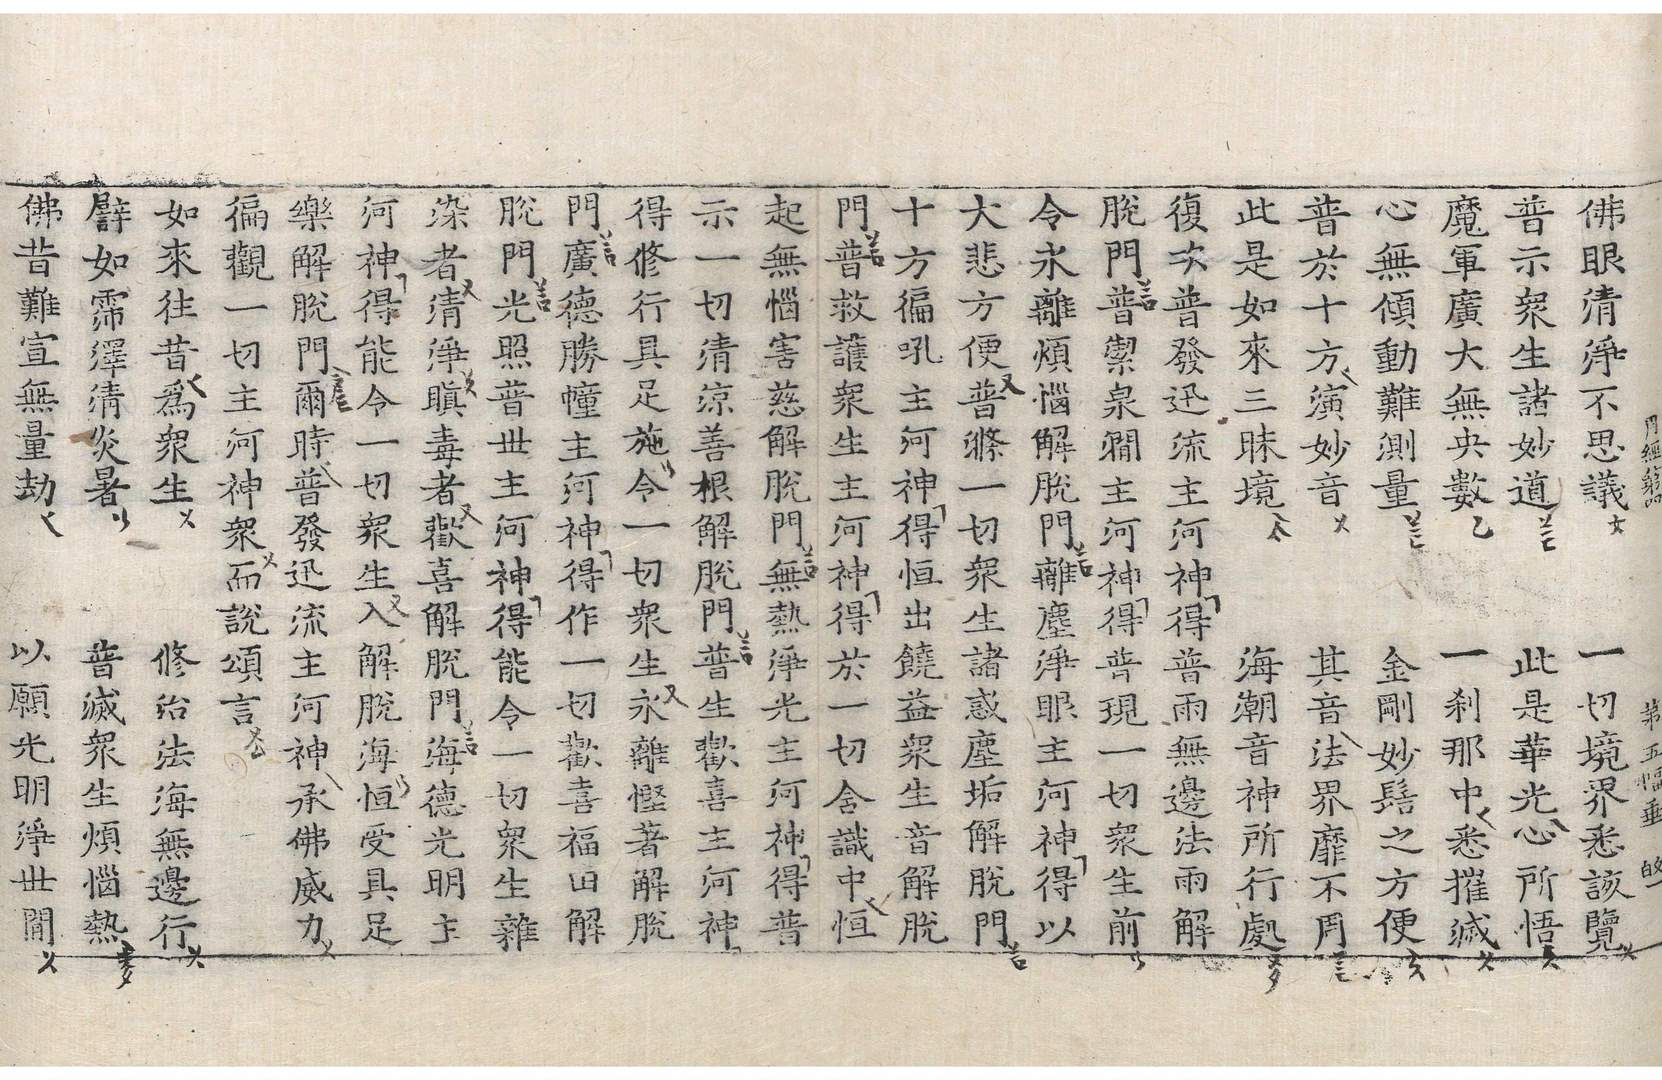 佛眼清淨不思議 一切境界悉該覽
普示衆生諸妙道 此是華光心所悟
魔軍廣大無央數 一刹那中悉摧滅
心無傾動難測量 金剛妙髻之方便
普於十方演妙音 其音法界靡不周
此是如來三昧境 海潮音神所行處
復次普發迅流主河神得普雨無邊法雨解
脫門普潔泉澗主河神得普現一切衆生前
令永離煩惱解脫門離塵淨眼主河神得以
大悲方便普滌一切衆生諸惑塵垢解脫門
十方徧吼主河神得恒出饒益衆生音解脫
門普救護衆生主河神得於一切含識中恒
起無惱害慈解脫門無熱淨光主河神得普
示一切清涼善根解脫門普生歡喜主河神
得修行具足施令一切衆生永離慳著解脫
門廣德勝幢主河神得作一切歡喜福田解
脫門光照普世主河神得能令一切衆生雜
染者清淨瞋毒者歡喜解脫門海德光明主
河神得能令一切衆生入解脫海恒受具足
樂解脫門爾時普發迅流主河神承佛威力
徧觀一切主河神衆而說頌言
如來往昔爲衆生 修治法海無邊行
譬如霈澤清炎暑 普滅衆生煩惱熱
佛昔難宣無量劫 以願光明淨世間